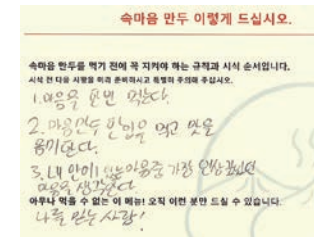 속마음 만두 이렇게 드십시오.
속마음 만두를 먹기 전에 꼭 지켜야 하는 규칙과 시식 순서입니다.
시식 전 다음 사항을 미리 준비하시고 특별히 주의해 주십시오.
1. 마음을 한번 먹는다.
2. 마음만두 한입을 먹고 맛을
음미한다.
3. 내 안에 있는 마음중 가장
마음을 생각한다.
아무나 먹을 수 없는 이 메뉴! 오직 이런 분만 드실 수 있습니다.
나를 믿는 사람!